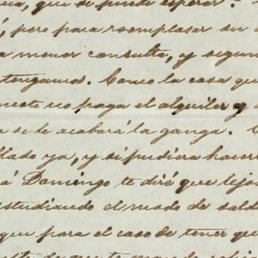 que se puede esperar
, pero para reemplasar su
menor consulta, y segun
tengamos. Como la casa que
no paga el alquiler y
si se te acabará la ganga.
lado ya, y si pudiera hacer
á Domingo te diré que lejos
estudiando el modo de sald
que para el caso de tener que